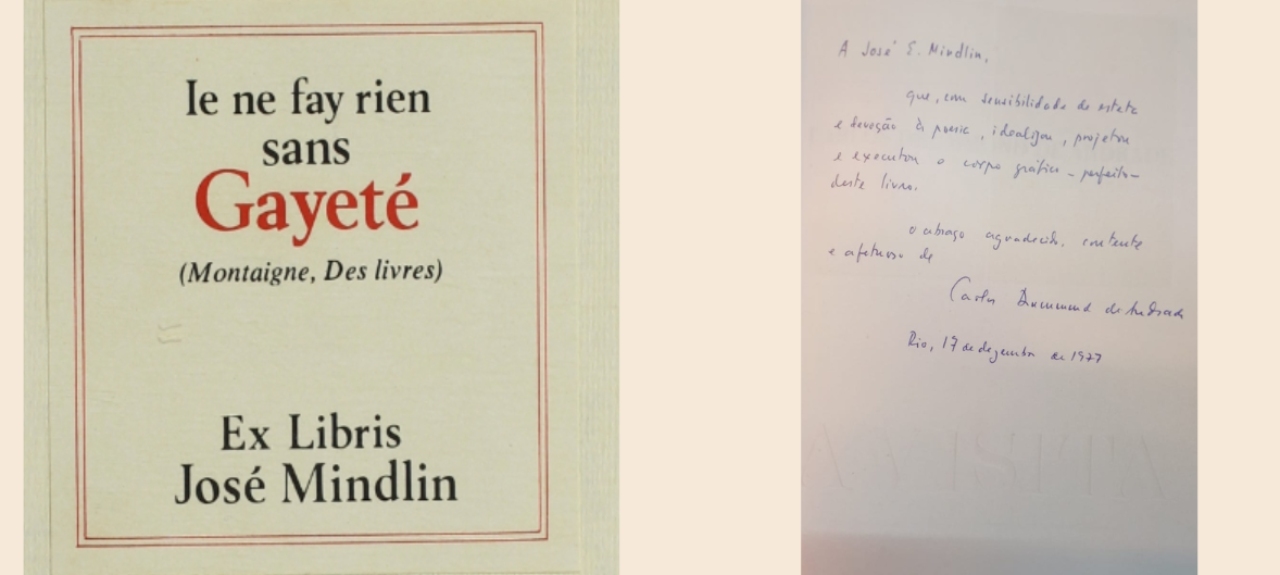 Ie ne fay rien
sans
Gayeté
(Montaigne, Des livres)
Ex Libris
José Mindlin
A José E. Mindlin,
que, com sensibilidade de esteta
e devoção à poesia, idealizou, projetou
e executou o corpo gráfico – perfeito –
deste livro.
o abraço agradecido, contente
e afetuoso de
Carlos Drummond de Andrade
Rio, 17 de dezembro de 1977